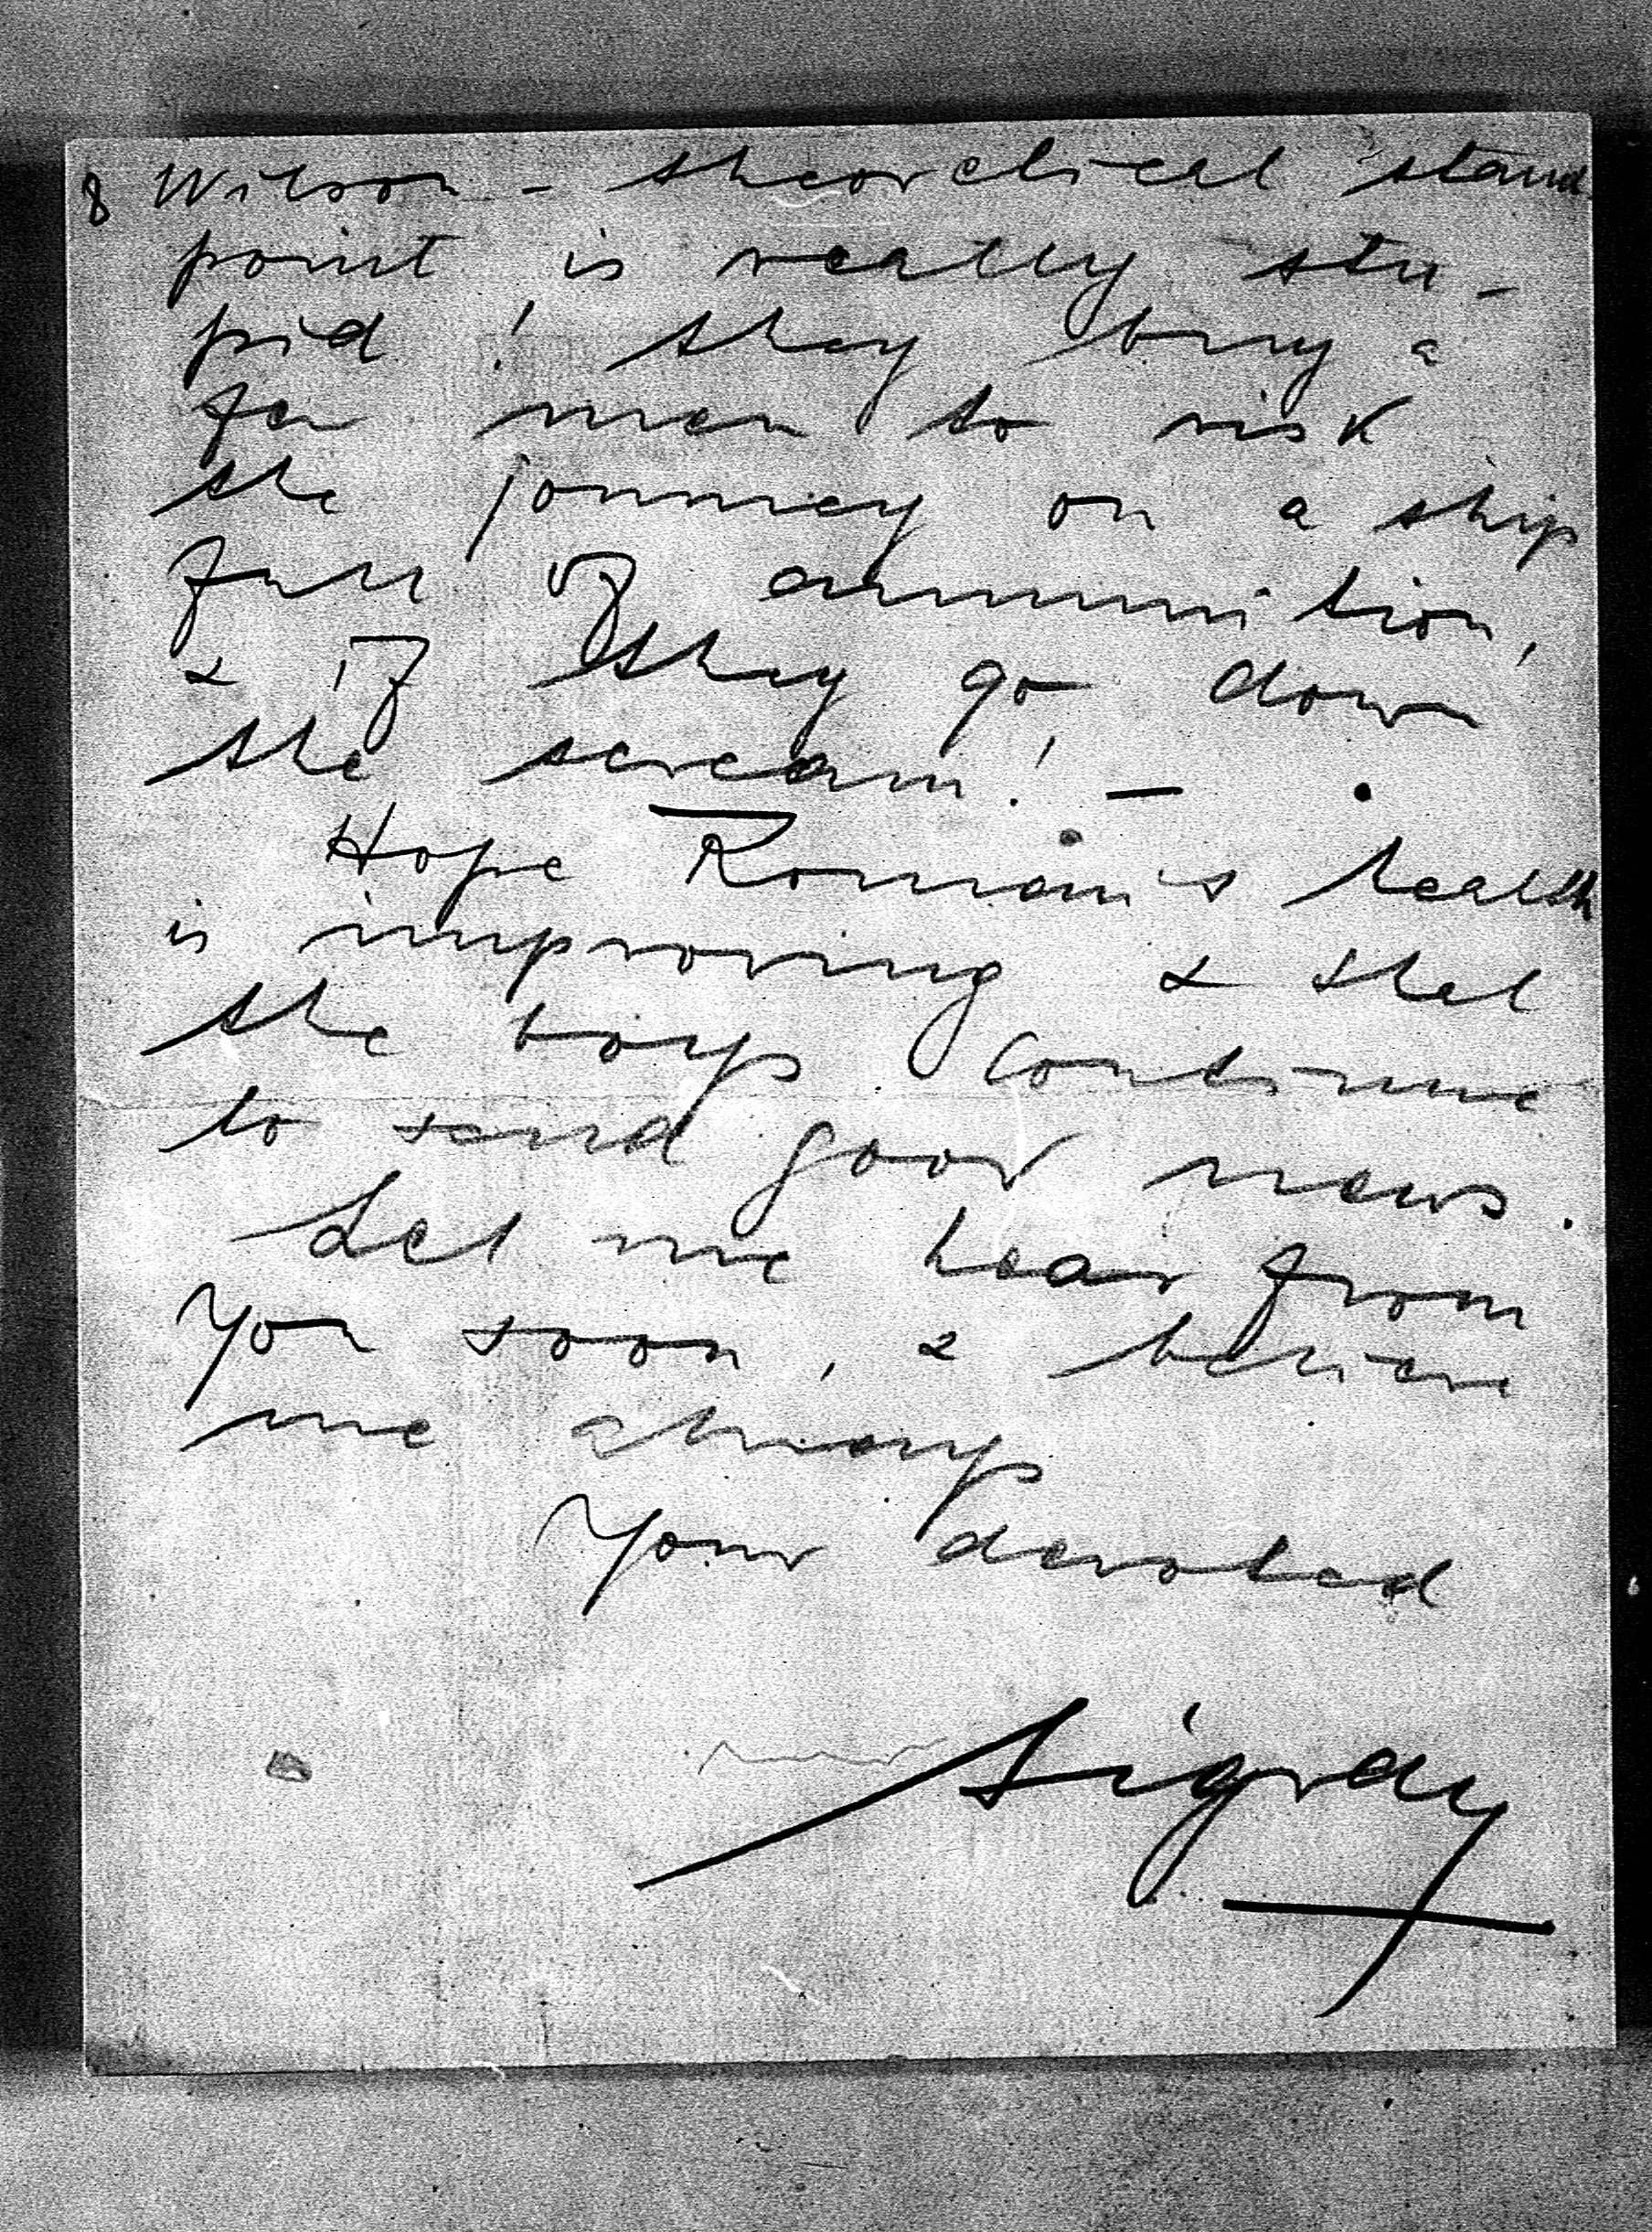 8 Wilson - theoretical stand
point is really stu-
pid! they buy a
few men to risk
the journey on a ship
full of ammunition,
& if they go down
the scream! —
Hope Roman's health
is improving & that
the boys continue
to send good news.
Let me hear from
you soon, & believe
me always
Your devoted
Sigray